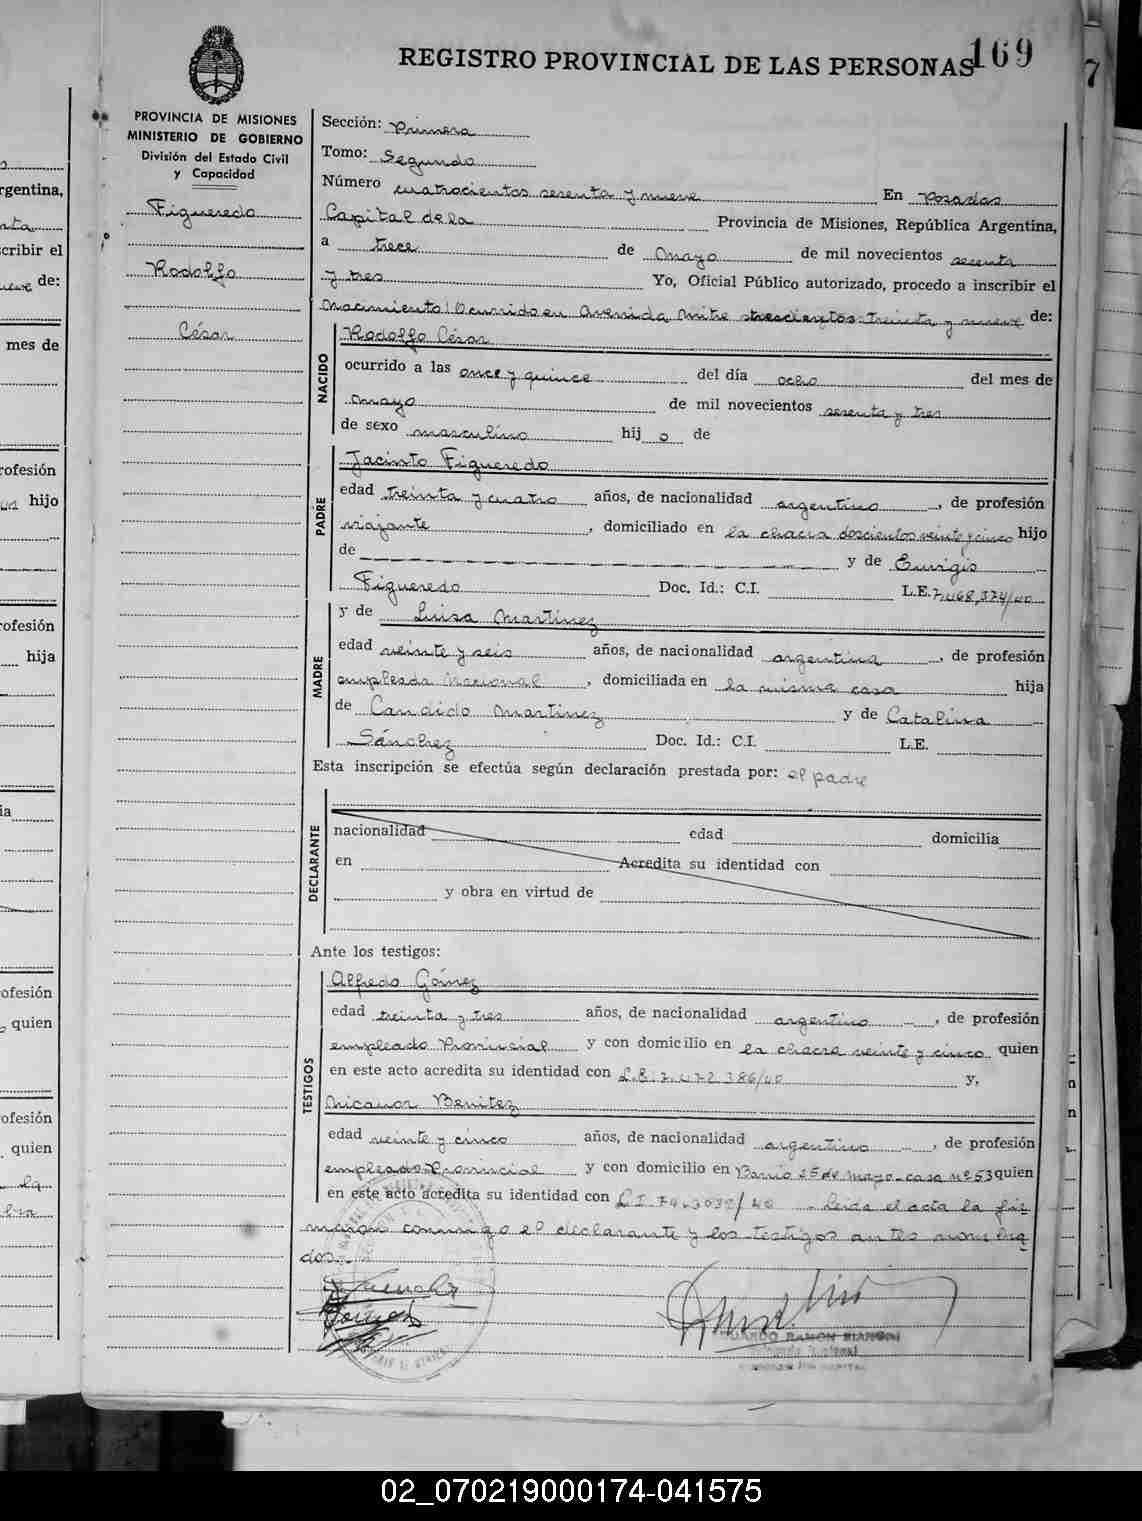 REGISTRO PROVINCIAL DE LAS PERSONAS 169
PROVINCIA DE MISIONES
MINISTERIO DE GOBIERNO
División del Estado Civil
y Capacidad
Figueredo
Rodolfo
César
Sección: Primera
Tomo: Segundo
Número cuatrocientos sesenta y nueve En Posadas
Capital de la Provincia de Misiones, República Argentina,
a trece de mayo de mil novecientos sesenta
y tres Yo, Oficial Público autorizado, procedo a inscribir el
Nacimiento Ocurrido en Avenida Mitre trescientos Treinta y nueve de:
NACIDO
Rodolfo César
ocurrido a las once y quince del día ocho del mes de
mayo de mil novecientos sesenta y tres
de sexo masculino hij o de
PADRE
Jacinto Figueredo
edad treinta y cuatro años, de nacionalidad argentino, de profesión
viajante, domiciliado en la chacra doscientos veinte y cinco hijo
de y de
Figueredo Doc. Id.: C.I. L.E.
MADRE
y de Luisa Martinez
edad veinte y seis años, de nacionalidad argentina, de profesión
empleada Nacional, domiciliada en la misma casa hija
de Candido Martinez y de Catalina
Sánchez Doc. Id.: C.I. L.E.
Esta inscripción se efectúa según declaración prestada por: el padre
DECLARANTE
nacionalidad edad domicilia
en Acredita su identidad con
y obra en virtud de
Ante los testigos:
TESTIGOS
Alfredo Gómez
edad treinta y tres años, de nacionalidad argentino, de profesión
empleado Provincial y con domicilio en la chacra veinte y cinco quien
en este acto acredita su identidad con L.E. y,
Nicanor Benitez
edad veinte y cinco años, de nacionalidad argentino, de profesión
empleado Provincial y con domicilio en Barrio 25 de mayo - casa Nº 53 quien
en este acto acredita su identidad con Leida el acta la fir-
maron conmigo el declarante y los testigos antes nombra-
dos.
RAMON
02_070219000174-041575